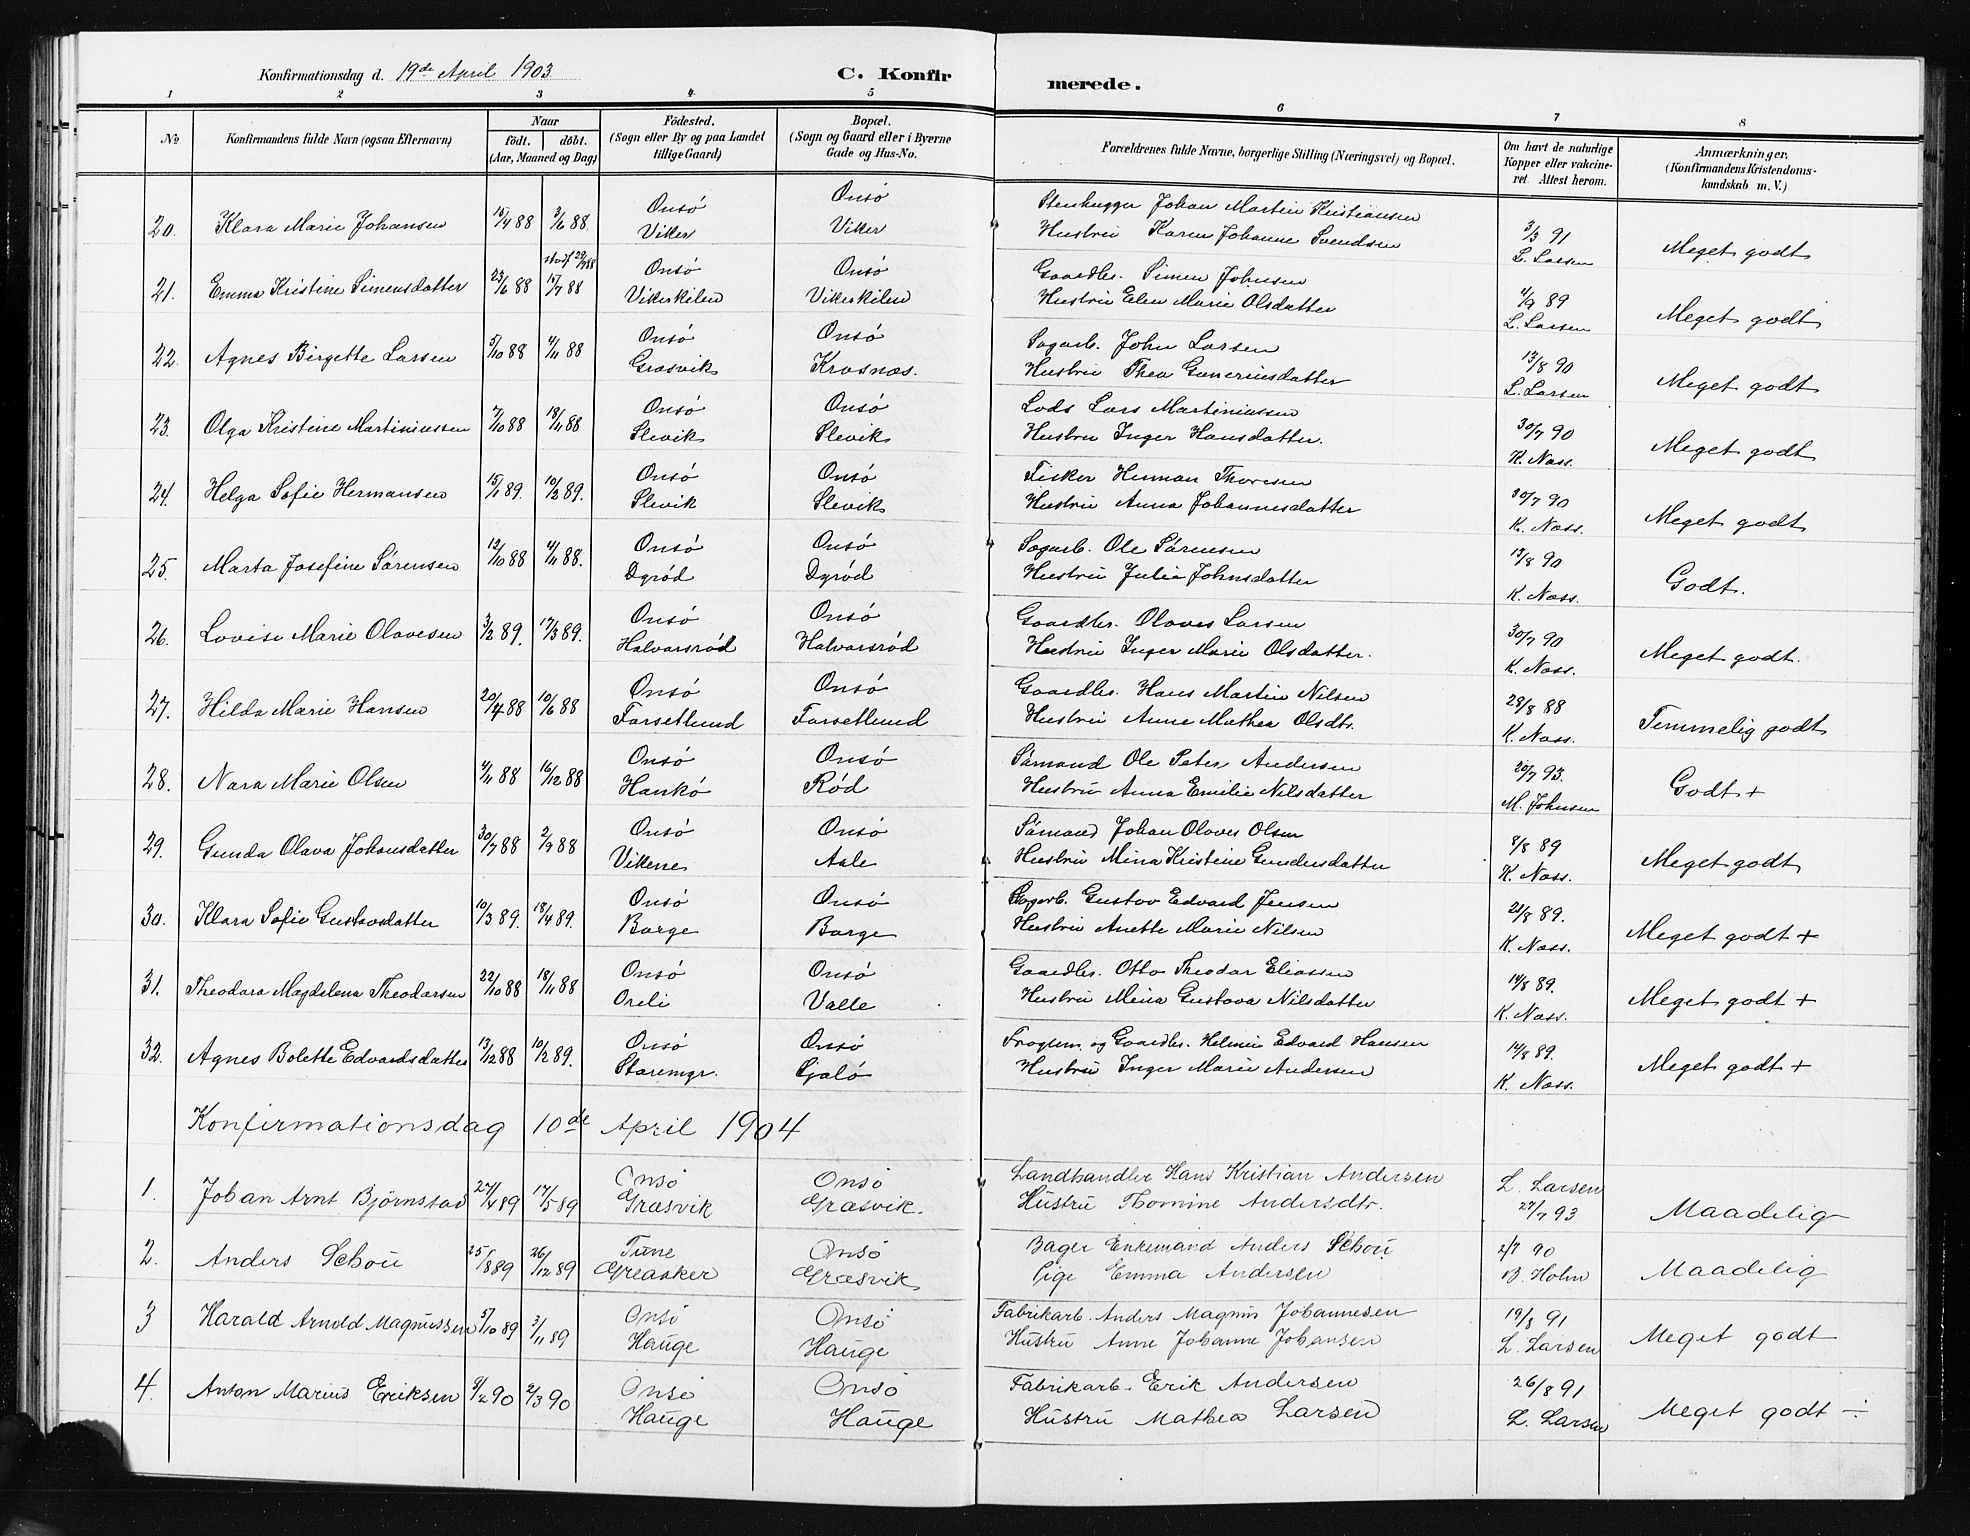 Konfirmationsdag d. 19de April 1903
C. Konfirmerede.
1 2 3 4. 5 6 7 8
No
Konfirmandens fulde Navn (ogsaa Efternavn)
Naar
födt. döbt.
(Aar, Maaned og Dag)
Födested.
(Sogn eller By og paa Landet
tillige Gaard)
Bopæl.
(Sogn og Gaard eller i Byerne
Gade og Hus-No.
Forældrenes fulde Navne, borgerlige Stilling (Næringsvei) og Bopæl.
Om havt de naturlige
Kopper eller vakcine-
ret Attest herom.
Anmærkninger.
(Konfirmandens Kristendoms-
kundskab m. V.)
20. Klara Marie Johansen 15/4 88 3/6 88. Onsö Viker Onsö Viker Stenhugger Johan Martin Kristiansen 3/3 91
Hustru Karen Johanne Svendsen L. Larsen Meget godt
21. Emma Kristine Simensdatter 23/6 88 15/7 88 Onsö Vikerkilen Onsö Vikerkilen Gaardbr. Simen Johnsen 4/9 89
Hustru Elen Marie Olsdatter L. Larsen Meget godt
22. Agnes Birgette Larsen 5/10 88 4/11 88 Onsö Græsvik Onsö Krosnæs. Sagarb. John Larsen 13/8 90
Hustru Thea Gunerius­datter L. Larsen Meget godt
23. Olga Kristine Martiniussen 7/10 88 18/11 88 Onsö Slevik Onsö Slevik Lods Lars Martiniussen 30/7 90
Hustru Inger Hansdatter. K. Næss. Meget godt
24. Helga Sofie Hermansen 15/1 89. 10/3 89. Onsö Slevik Onsö Slevik Fisker Herman Thoresen 30/7 90
Hustru Anna Johannesdatter K. Næss. Meget godt
25. Marta Josefine Sörensen 12/10 88 4/11 88. Onsö Dyröd Onsö Dyröd Sagarb. Ole Sörensen 13/8 90
Hustru Julie Johnsdatter K. Næss. Godt.
26. Lovise Marie Olavesen 3/2 89. 17/3 89. Onsö Halvarsröd Onsö Halvarsröd Gaardbr. Olaves Larsen 30/7 90
Hustru Inger Marie Olsdatter. K. Næss. Meget godt.
27. Hilda Marie Hansen 20/4 88 10/6 88 Onsö Farsetlund Onsö Farsetlund Gaardbr. Hans Martin Nilsen 28/8 88
Hustru Anne Mathea Olsdtr. K. Næss. Temmelig godt
28. Nara Marie Olsen 4/11 88 16/12 88 Onsö Hankö Onsö Röd Sömand Ole Peter Andersen 20/7 93.
Hustru Anna Emilie Nilsdatter M. Johnsen Godt +
29. Gunda Olava Johansdatter 30/7 88 2/9 88 Onsö Vikene Onsö Aale Sömand Johan Olaves Olsen 8/8 89
Hustru Mina Kristine Gundersdatter K. Næss. Meget godt
30. Klara Sofie Gustavsdatter 10/3 89. 18/4 89. Onsö Borge Onsö Borge Sagarb. Gustav Edvard Jensen 21/8 89.
Hustru Anette Marie Nilsen K. Næss. Meget godt +
31. Theodara Magdelena Theodarsen 22/10 88 18/11 88 Onsö Oreli Onsö Valle Gaardbr. Otto Theodar Eliassen 14/8 89.
Hustru Mina Gustava Nilsdatter K. Næss. Meget godt +
32. Agnes Bolette Edvardsdatter 13/12 88 10/2 89. Onsö Staremgr. Onsö Gjalö og Gaardbr. Helmin Edvard Hansen 14/8 89.
Hustru Inger Marie Andersen K. Næss. Meget godt +
Konfirmationsdag 10de April 1904
1. Johan Arnt Björnstad 27/4 89 17/5 89 Onsö Græsvik Onsö Græsvik. Landhandler Hans Kristian Andersen L. Larsen
Hustru Thomine Andersdtr. 27/7 93 Maadelig
2. Anders Schou 25/8 89 26/12 89 Tune Greaaker Onsö Græsvik Bager Enkemand Anders Schou 2/7 90
Pige Emma Andersen B. Holm Maadelig
3 Harald Arnold Magnussen 5/10 89 3/11 89 Onsö Hauge Onsö Hauge Fabrikarb. Anders Magnus Johannesen 19/8 91
Hustru Anne Johanne Johansen L. Larsen Meget godt
4. Anton Marius Eriksen 9/2 90 2/3 90 Onsö Hauge Onsö Hauge Fabrikarb. Erik Andersen 26/8 91
Hustru Mathea Larsen L. Larsen Meget godt ÷